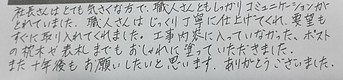 社長さんはとても気さくな方で、職人さんともしっかりコミュニケーションが
とれていました。職人さんはじっくり丁寧に仕上げてくれ、要望も
すぐに取り入れてくれました。工事内容に入っていなかった、ポスト
の枕木や表札までもおしゃれに塗っていただきました。
また十年後もお願いしたいと思います。ありがとうございました。